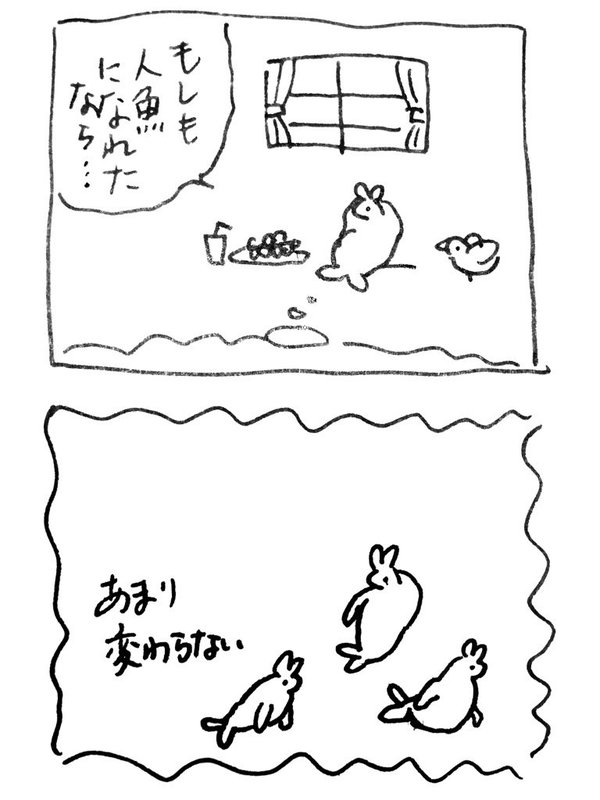 もしも
人魚
になれた
なら…
あまり
変わらない